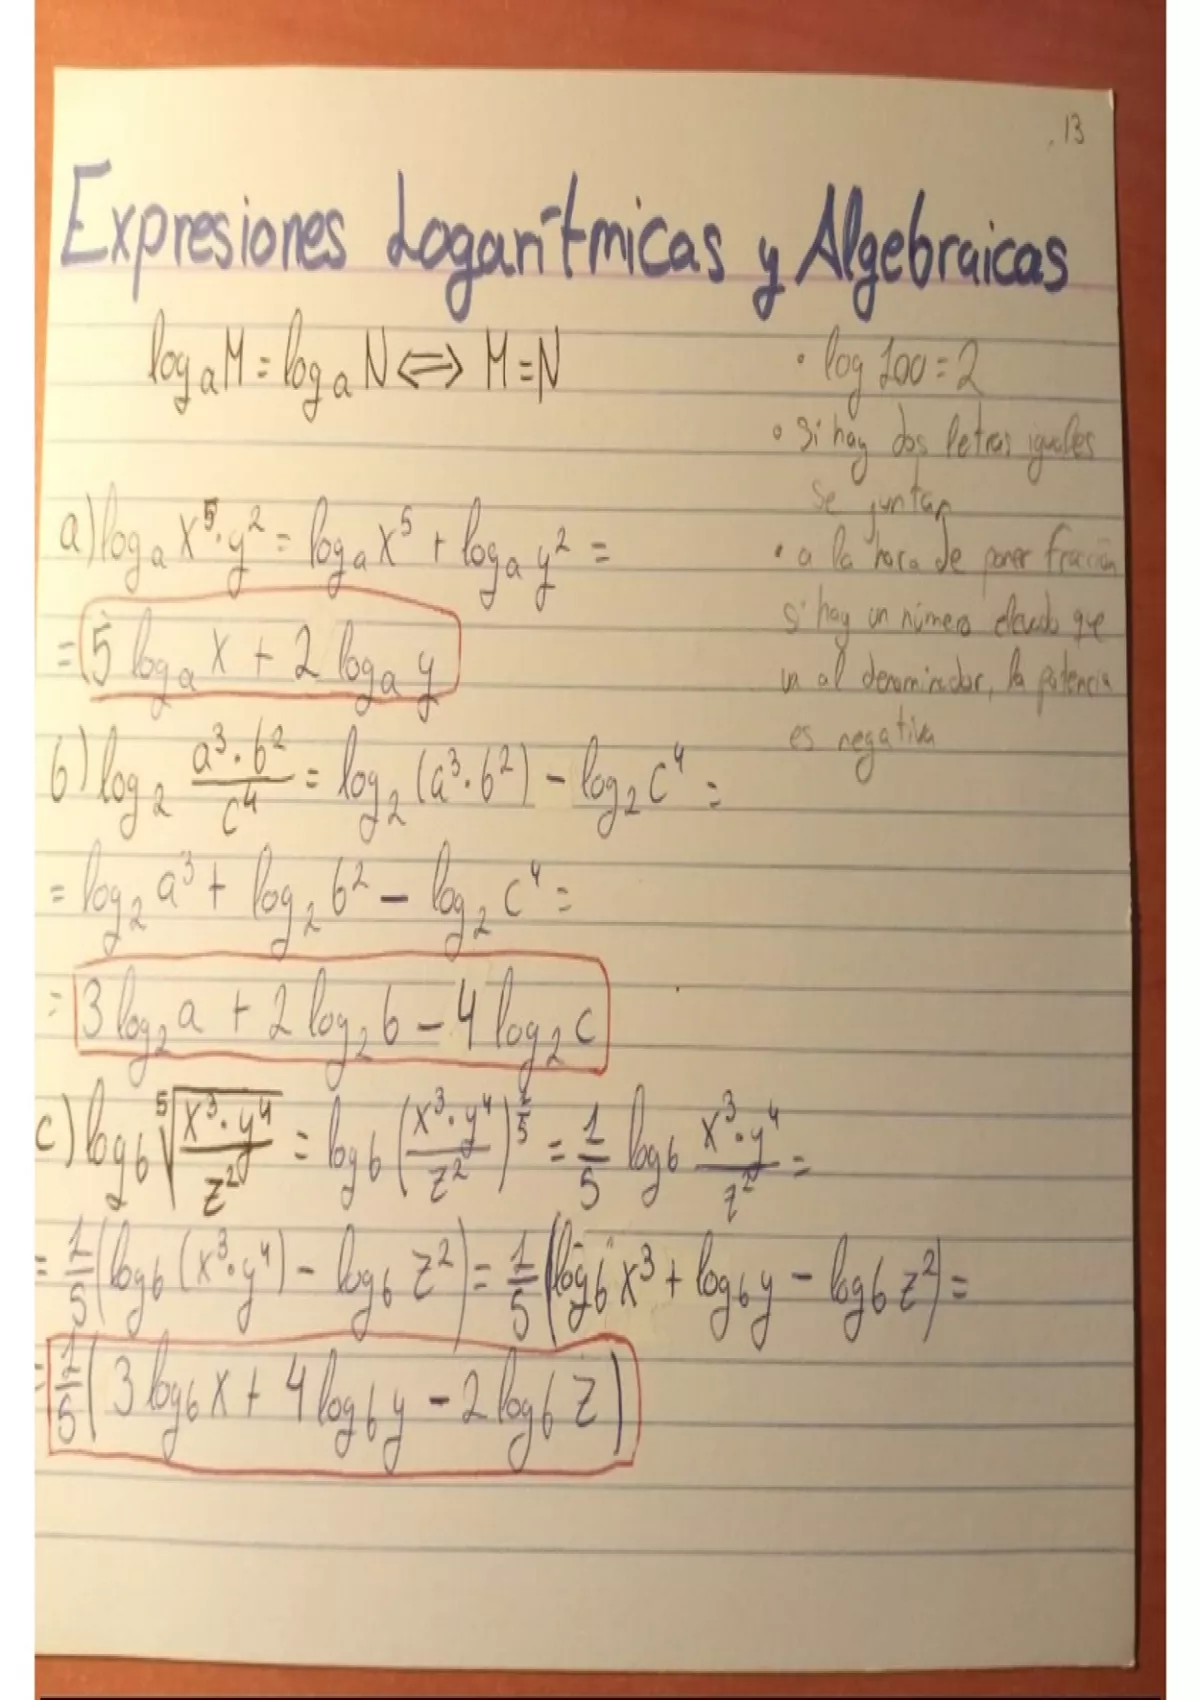 13
Expresiones Logarítmicas y Algebraicas
logₐM = logₐN ⟺ M=N
• log 100 = 2
• Si hay dos letras iguales
se juntan
• a la hora de poner fracción
si hay un número elevado que
va al denominador, la potencia
es negativa
a) logₐ x⁵·y² = logₐ x⁵ + logₐ y² =
= 5 logₐ x + 2 logₐ y
b) log₂ (a³·b²)/c⁴ = log₂ (a³·b²) − log₂ c⁴ =
= log₂ a³ + log₂ b² − log₂ c⁴ =
= 3 log₂ a + 2 log₂ b − 4 log₂ c
c) log₆ ⁵√((x³·y⁴)/z²) = log₆ ((x³·y⁴)/z²)^(1/5) = 1/5 log₆ (x³·y⁴)/z² =
= 1/5 (log₆ (x³·y⁴) − log₆ z²) = 1/5 (log₆ x³ + log₆ y − log₆ z²) =
= 1/5 (3 log₆ x + 4 log₆ y − 2 log₆ z)